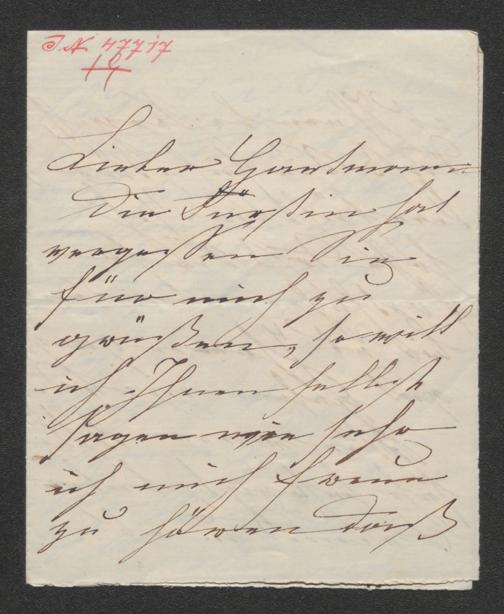 J. N. 47717
Lieber Hartmann
die Fürstin hat
vergessen Sie
für mich zu
grüßen, so will
ich Ihnen selbst
sagen wie sehr
ich mich freue
zu hören daß